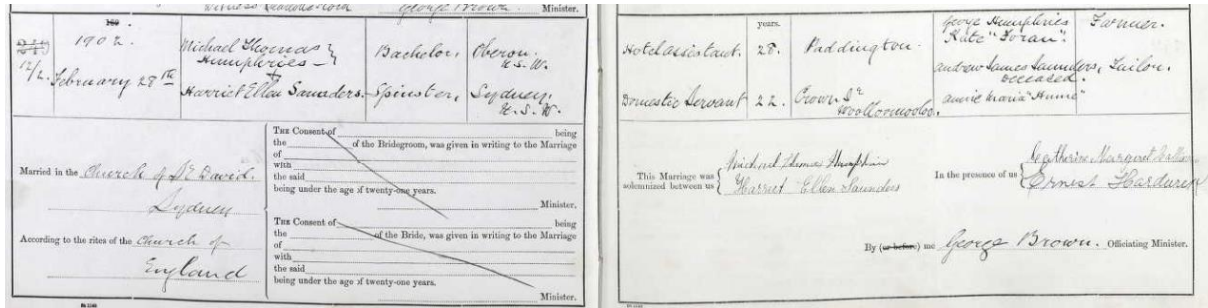 George Brown Minister.
1902.
12/2. February 28th
Michael Thomas
Humphries
&
Harriet Ellen Saunders.
Bachelor,
Spinster,
Oberon.
N.S.W.
Sydney.
N.S.W.
Married in the Church of St David.
Sydney
According to the rites of the Church of
England
THE Consent of being
the of the Bridegroom, was given in writing to the Marriage
of
with
the said
being under the age of twenty-one years.
Minister.
THE Consent of being
the of the Bride, was given in writing to the Marriage
of
with
the said
being under the age of twenty-one years.
Minister.
years.
Hotel assistant 28. Paddington.
Domestic Servant 22. Crown St
Woolloomooloo.
George Humphries
Kate "Foran".
Farmer.
Andrew James Saunders, Tailor.
deceased.
Annie Maria "Hume"
This Marriage was
solemnized between us
Michael Thomas Humphries
Harriet Ellen Saunders
In the presence of us
Catherine Margaret
Ernest
By (or before) me George Brown. Officiating Minister.